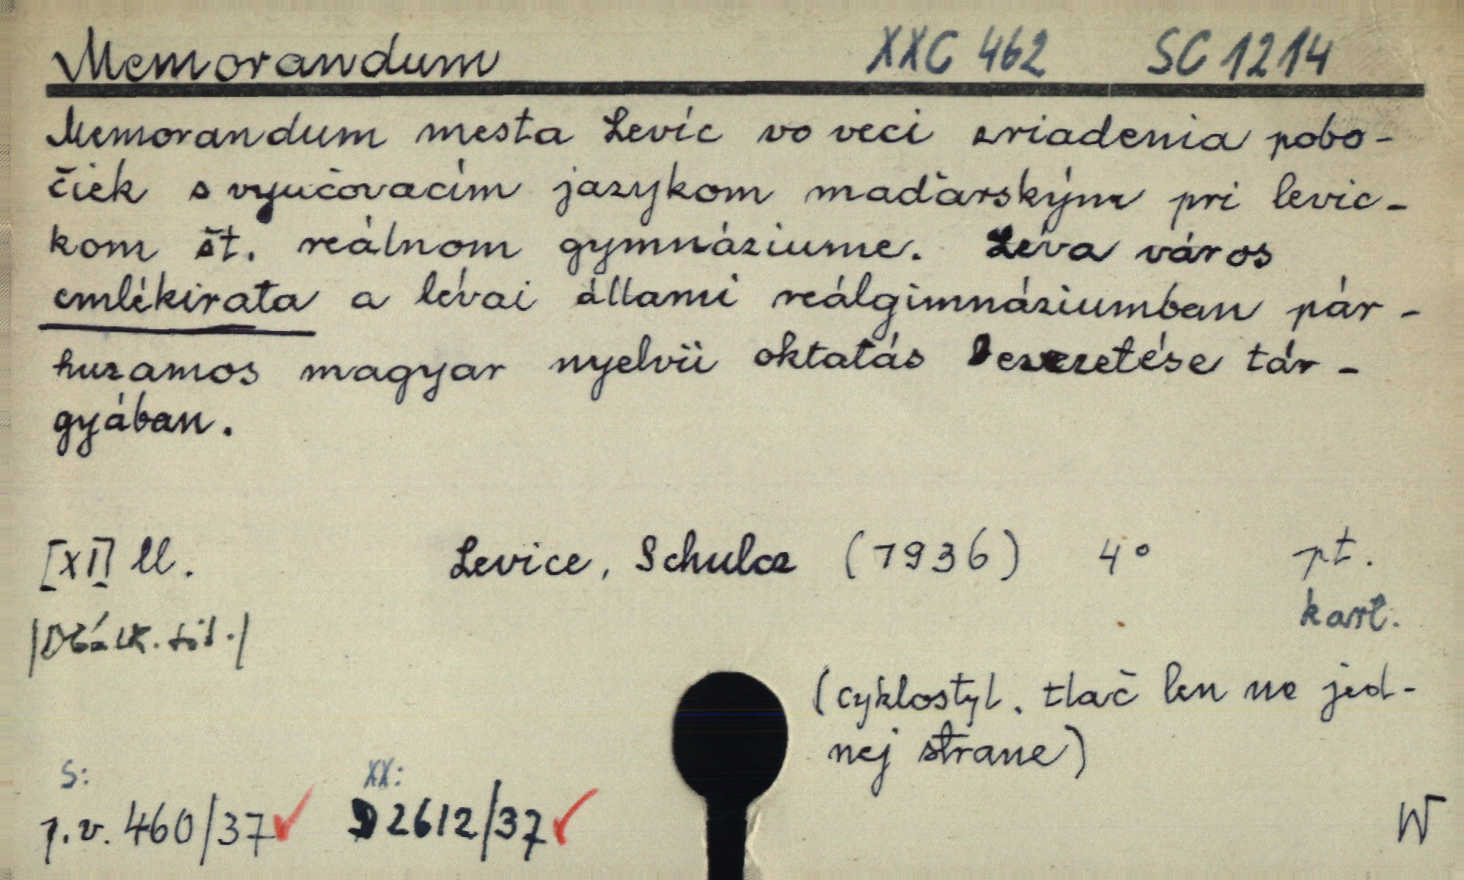 Memorandum XXC 462 SC 1214
Memorandum mesta Levíc vo veci zriadenia pobo-
čiek s vyučovacím jazykom maďarským pri levic-
kom št. reálnom gymnáziume. Léva város
emlékirata a lévai állami reálgimnáziumban pár-
huzamos magyar nyelvü oktatás bevezetése tár-
gyában.
[XI] ll. Levice, Schulcz (1936) 4° pt.
kart.
(cyklostyl. tlač len na jed-
nej strane)
S: XX:
p.v. 460/37 D2612/37 W